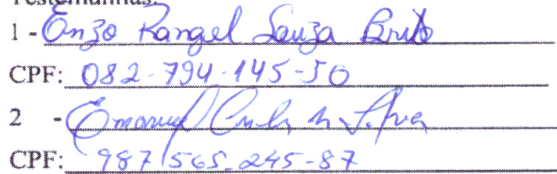 Testemunhas:
1 - Enzo Rangel Souza Brito
CPF: 082.794.145-50
2 - Emanuel da Silva
CPF: 987 565.245-87